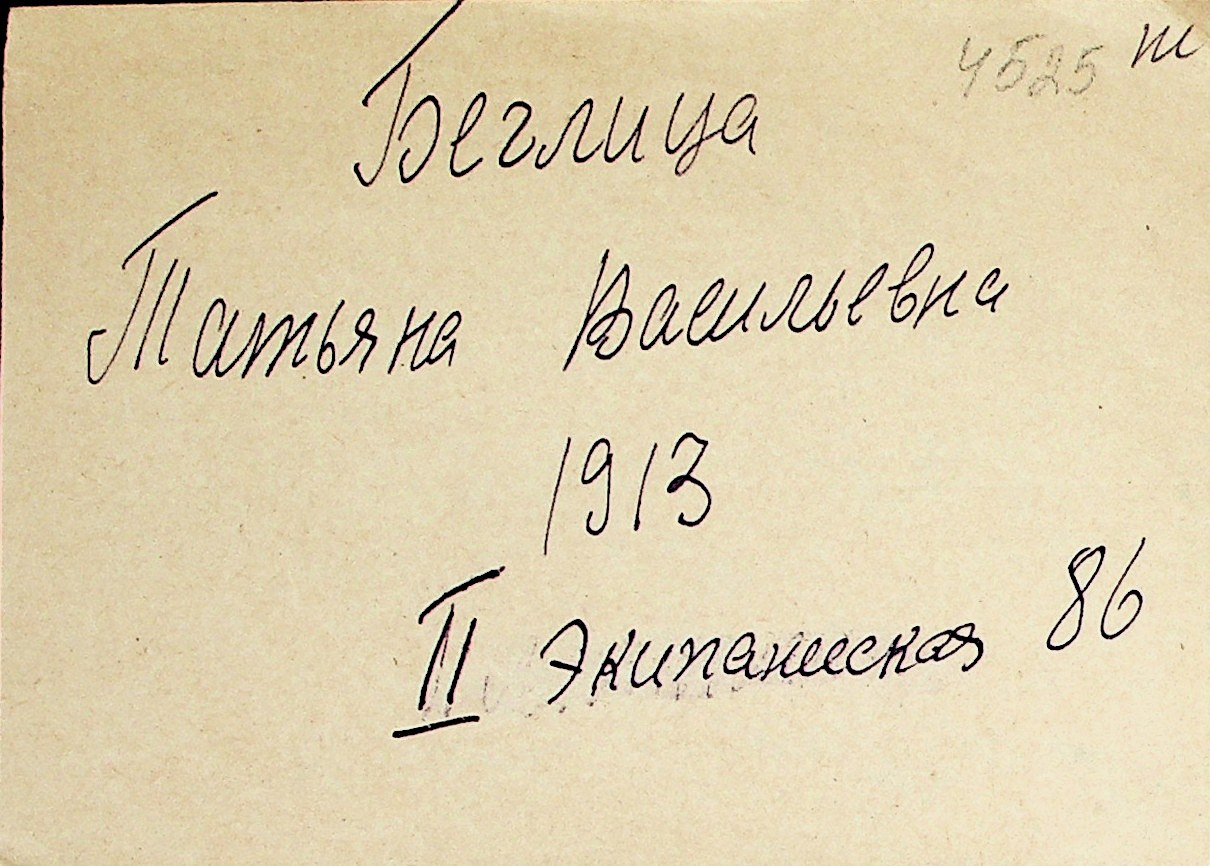 4525 т
Беглица
Татьяна Васильевна
1913
II Экипажская 86